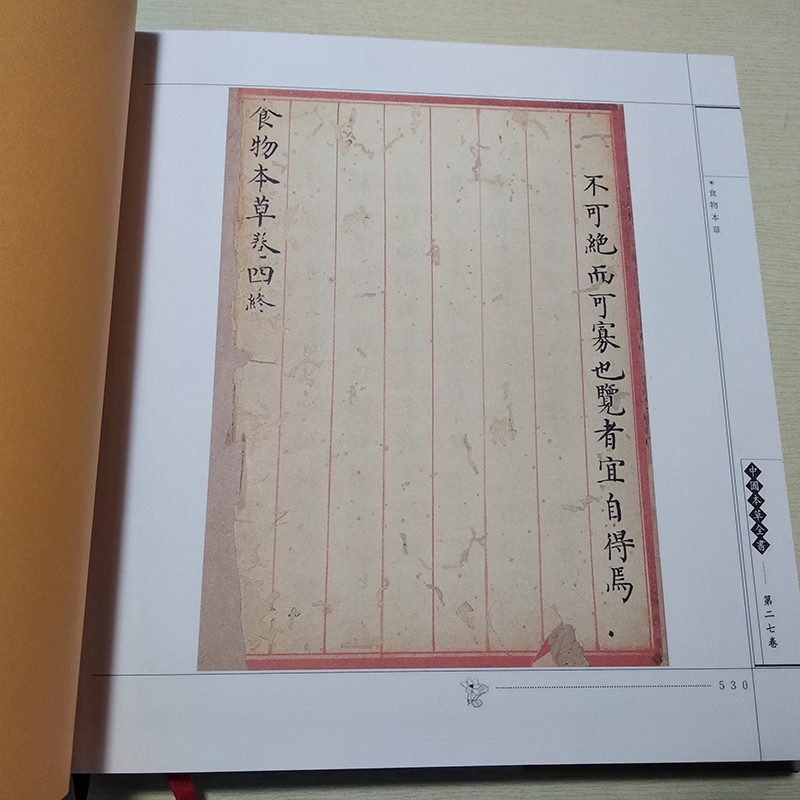 不可絶而可寡也覽者宜自得焉
食物本草卷四終
食物本草
中國本草全書
第二七卷
530